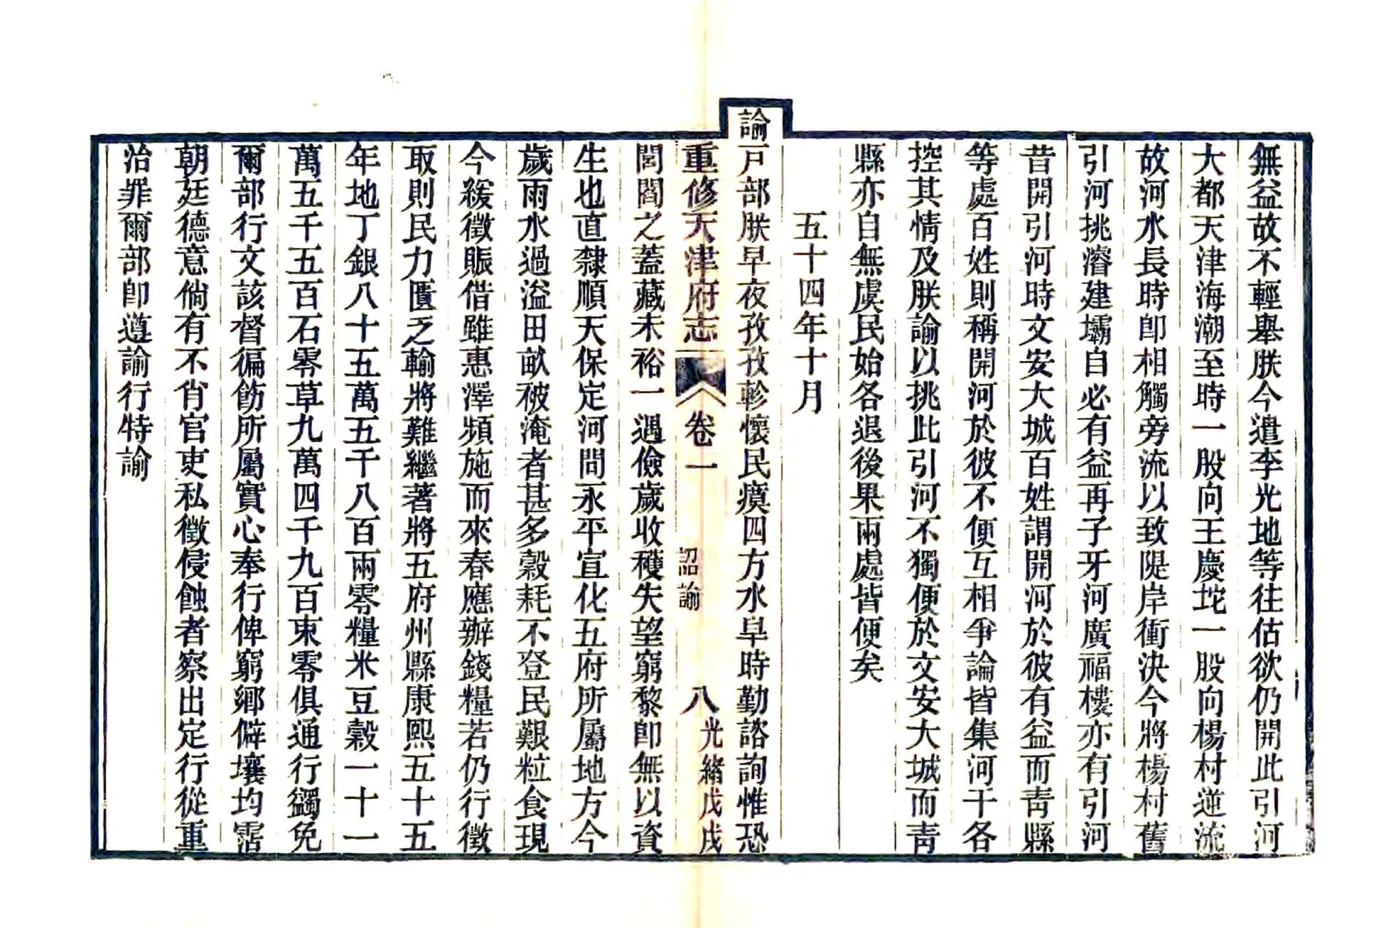 無益故不輕舉朕今遣李光地等往估欲仍開此引河
大都天津海潮至時一股向王慶坨一股向楊村逆流
故河水長時卽相觸旁流以致隄岸衝決今將楊村舊
引河挑濬建壩自必有益再子牙河廣福樓亦有引河
昔開引河時文安大城百姓謂開河於彼有益而靑縣
等處百姓則稱開河於彼不便互相爭論皆集河干各
控其情及朕諭以挑此引河不獨便於文安大城而靑
縣亦自無虞民始各退後果兩處皆便矣
五十四年十月
諭戸部朕早夜孜孜軫懷民瘼四方水旱時勤諮詢惟恐
重修天津府志 卷一 詔諭 八 光緒戊戌
閭閻之蓋藏未裕一遇儉歲收穫失望窮黎卽無以資
生也直隸順天保定河間永平宣化五府所屬地方今
歲雨水過溢田畝被淹者甚多穀耗不登民艱粒食現
今緩徵賑借雖惠澤頻施而來春應辦錢糧若仍行徵
取則民力匱乏輸將難繼著將五府州縣康熙五十五
年地丁銀八十五萬五千八百兩零糧米豆穀一十一
萬五千五百石零草九萬四千九百束零俱通行蠲免
爾部行文該督徧飭所屬實心奉行俾窮鄉僻壤均霑
朝廷德意倘有不肖官吏私徵侵蝕者察出定行從重
治罪爾部卽遵諭行特諭